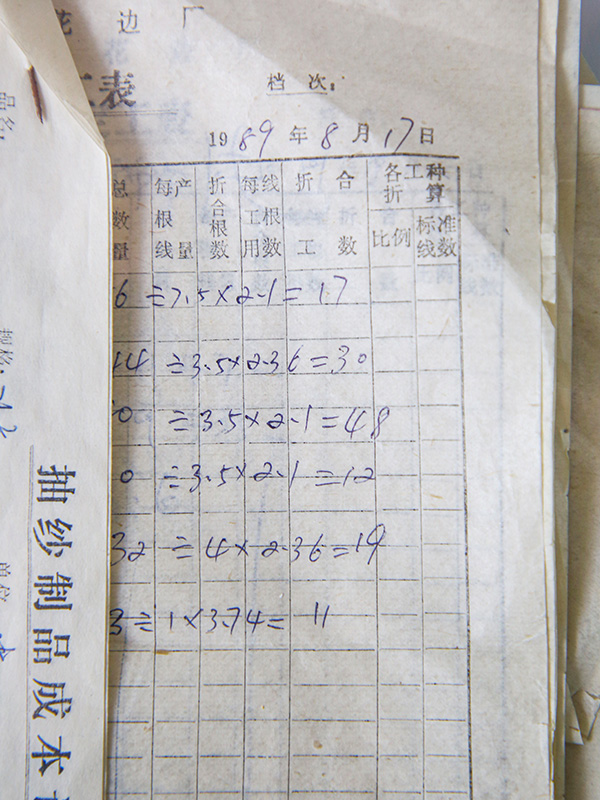 花 边 厂
工表
档 次:
1989 年 8 月 17 日
总数量 每根线 产量 折合根数 每工用 线根数 折合工数 各工种折算
比例 标准线数
6 ÷7.5×2.1=17
14 ÷3.5×2.36=30
0 ÷3.5×2.1=48
0 ÷3.5×2.1=12
32 ÷4×2.36=19
3÷1×3.74= 11
品名:
规格:
抽纱制品成本